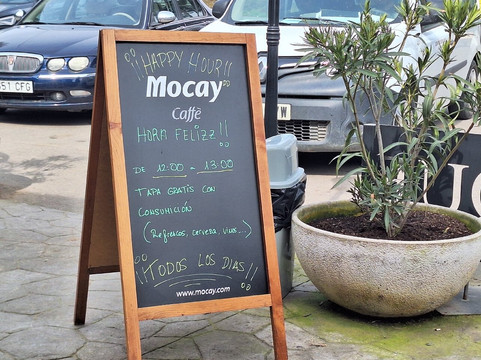 ¡¡HAPPY HOUR!!
Mocay
Caffè
HORA FELIZZ!!
DE 12:00 - 13:00
TAPA GRATIS CON
CONSUMICIÓN
(Refrescos, cerveza, vinos...)
¡¡TODOS LOS DIAS!!
www.mocay.com